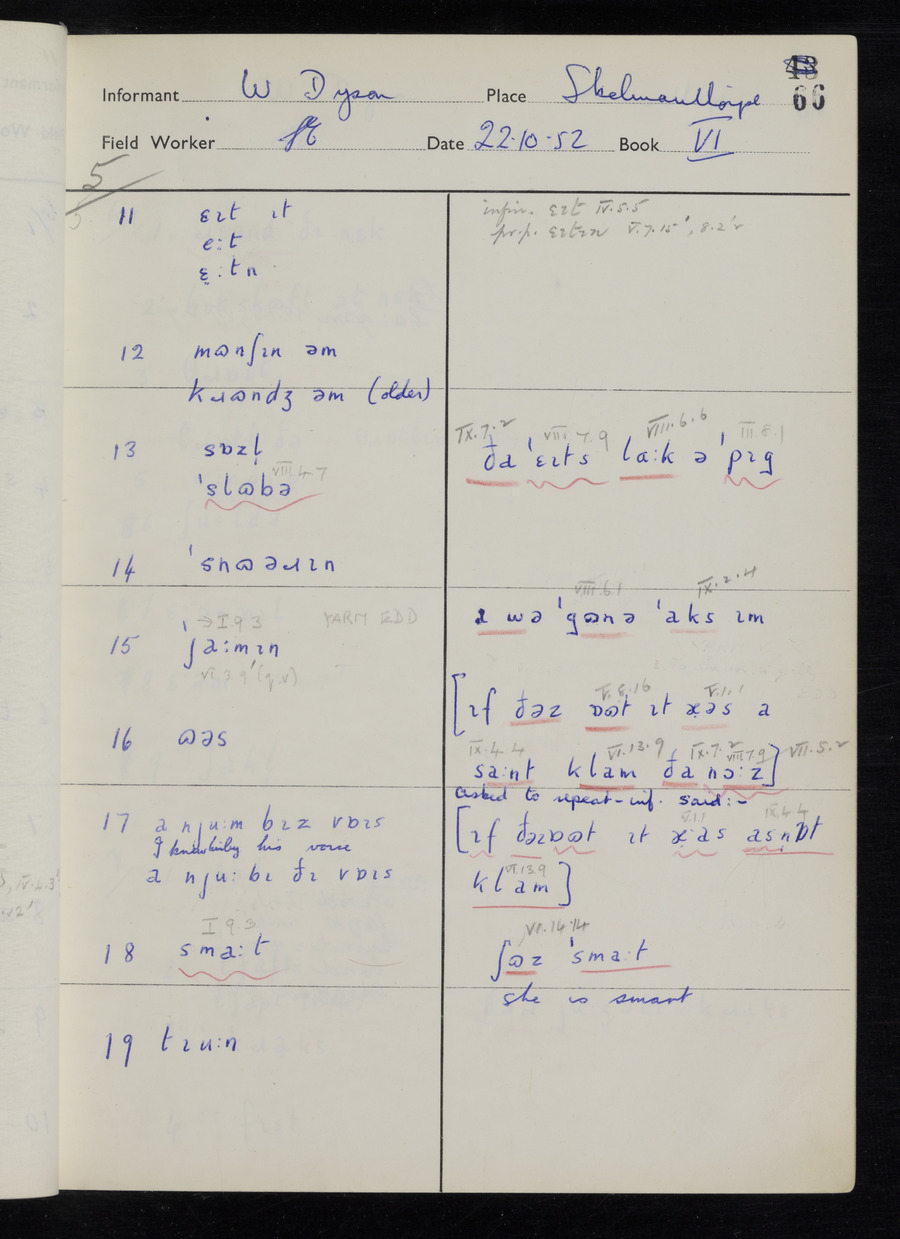 43
66
Informant W Dyson Place Skelmanthorpe
Field Worker Date 22.10.52 Book VI
5
11 ɛɪt ɪt
e:t
ɛ̣:tn
infin. ɛɪt IV.5.5
pr.p. ɛɪtɪn V.7.15', 8.2'
12 mɷnʃɪn əm
kɹɷndʒ əm (older)
13 sɒzl̩
VIII.4 7
'slɷbə
IX.7.2 VIII 7.9 VIII.6.6 III.8.1
ða 'ɛɪts la:k ə 'pɪg
14 'snɷəɹɪn
15 'ʃa:mɪn
→I 9 3 YARM EDD
VI.3.9' (q.v)
VIII.6.1 IX.2.4
ɪ wə 'gɷnə 'aks ɪm
16 ɷəs
V.8.16 V.1.1
[ɪf ðəz nɷt ɪt æəs a
IX.4.4 VI.13.9 IX.7.2 VIII 7.9 VII.5.2
sa:nt klam ða nɔ:z]
asked to repeat - inf. said:-
V.1.1 IX.4.4
[ɪf ðəznɷt ɪt æas asnɒt
VI.13.9
klam]
17 a nju:m bɪz vɒɪs
I know him by his voice
a nju: bɪ ðɪ vɒɪs
18 sma:t
I 9.3
VI.14.14
ʃɷz 'sma:t
she is smart
19 tɪu:n